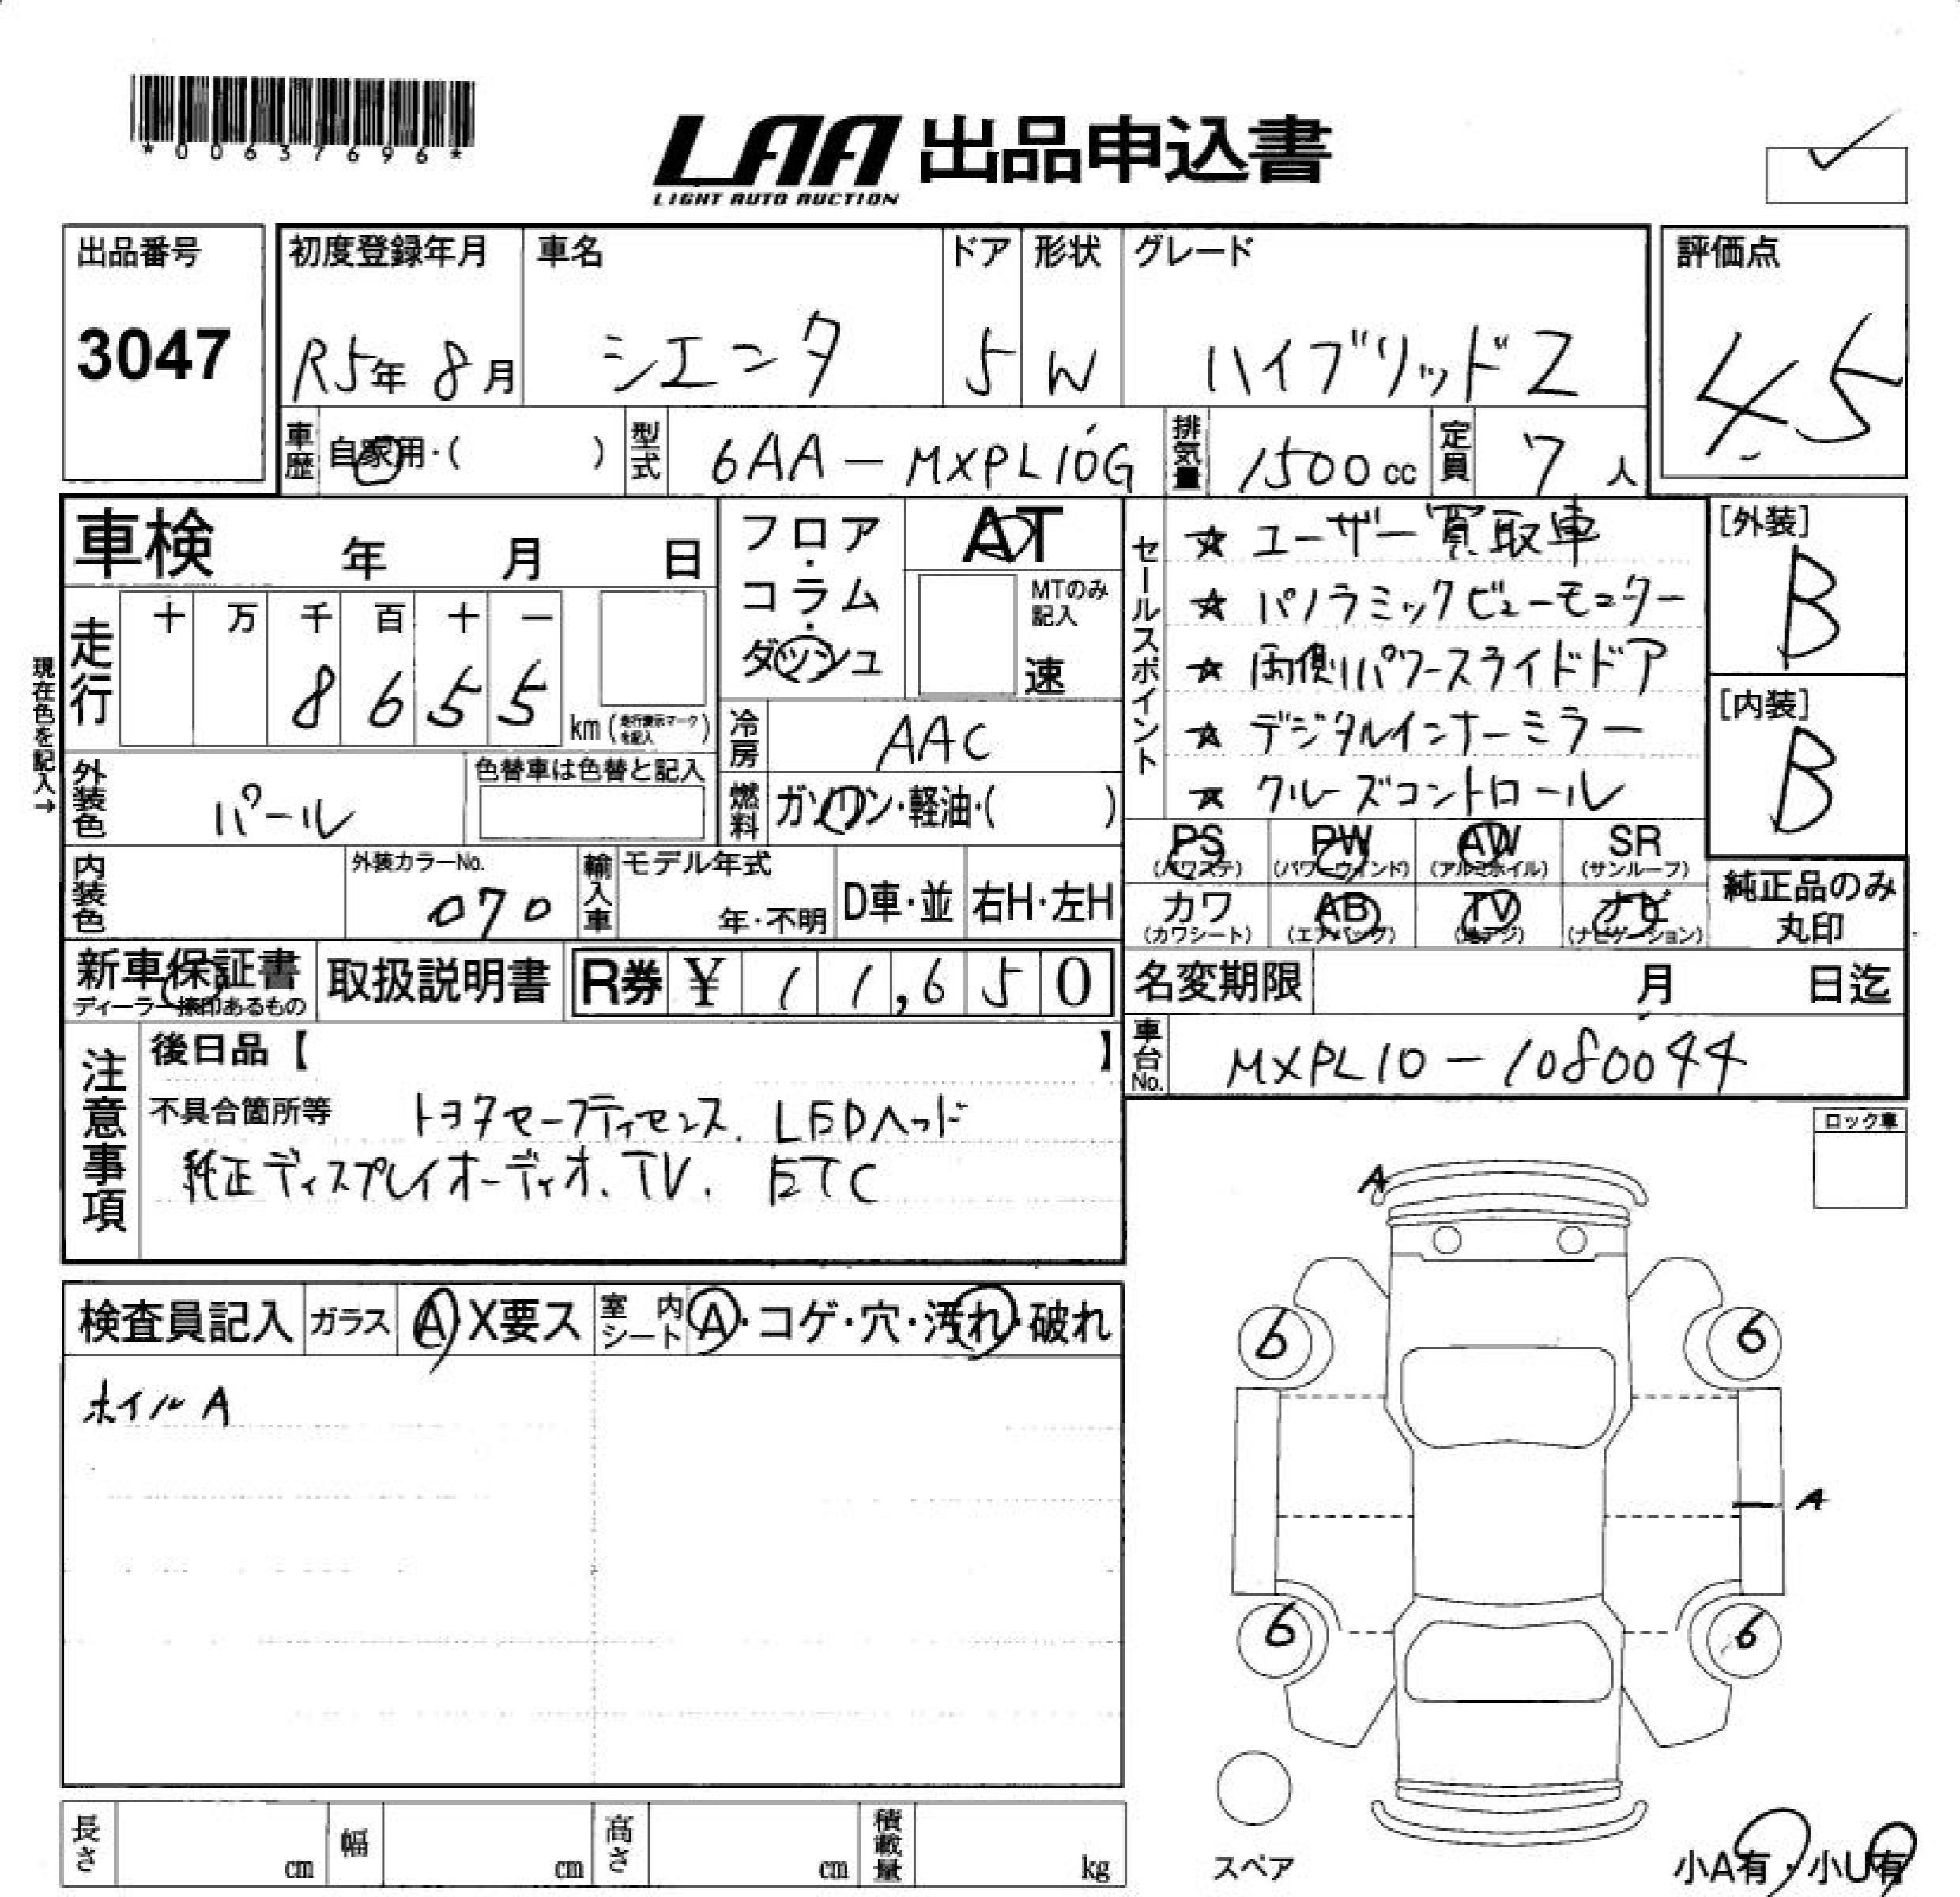 *00637696*
LAA 出品申込書
LIGHT AUTO AUCTION
出品番号
3047
初度登録年月
R5年 8月
車名
シエンタ
ドア
5
形状
W
グレード
ハイブリッドZ
評価点
4.5
車歴
自家用・( )
型式
6AA-MXPL10G
排気量
1500cc
定員
7人
車検 年 月 日
現在色を記入→
走行
十 万 千 百 十 一
8 6 5 5
km(走行表示マークを記入)
フロア・コラム・ダッシュ
AT
MTのみ記入
速
冷房
AAC
燃料
ガソリン・軽油・( )
外装色
パール
色替車は色替と記入
内装色
外装カラーNo.
070
輸入車
モデル年式
年・不明
D車・並
右H・左H
セールスポイント
☆ ユーザー買取車
☆ パノラミックビューモニター
☆ 両側パワースライドドア
☆ デジタルインナーミラー
☆ クルーズコントロール
[外装]
B
[内装]
B
PS
(パワステ)
PW
(パワーウィンド)
AW
(アルミホイル)
SR
(サンルーフ)
カワ
(カワシート)
AB
(エアバッグ)
TV
(地デジ)
ナビ
(ナビゲーション)
純正品のみ
丸印
新車保証書
ディーラー捺印あるもの
取扱説明書
R券 ¥ 11,650
名変期限 月 日迄
車台No.
MXPL10-1080044
注意事項
後日品【 】
不具合箇所等 トヨタセーフティセンス. LEDヘッド
純正ディスプレイオーディオ. TV. ETC
ロック車
検査員記入
ガラス
A・X要ス
室内
シート
A・コゲ・穴・汚れ・破れ
ホイルA
A
6
6
A
6
6
スペア
小A有・小U有
長さ
cm
幅
cm
高さ
cm
積載量
kg